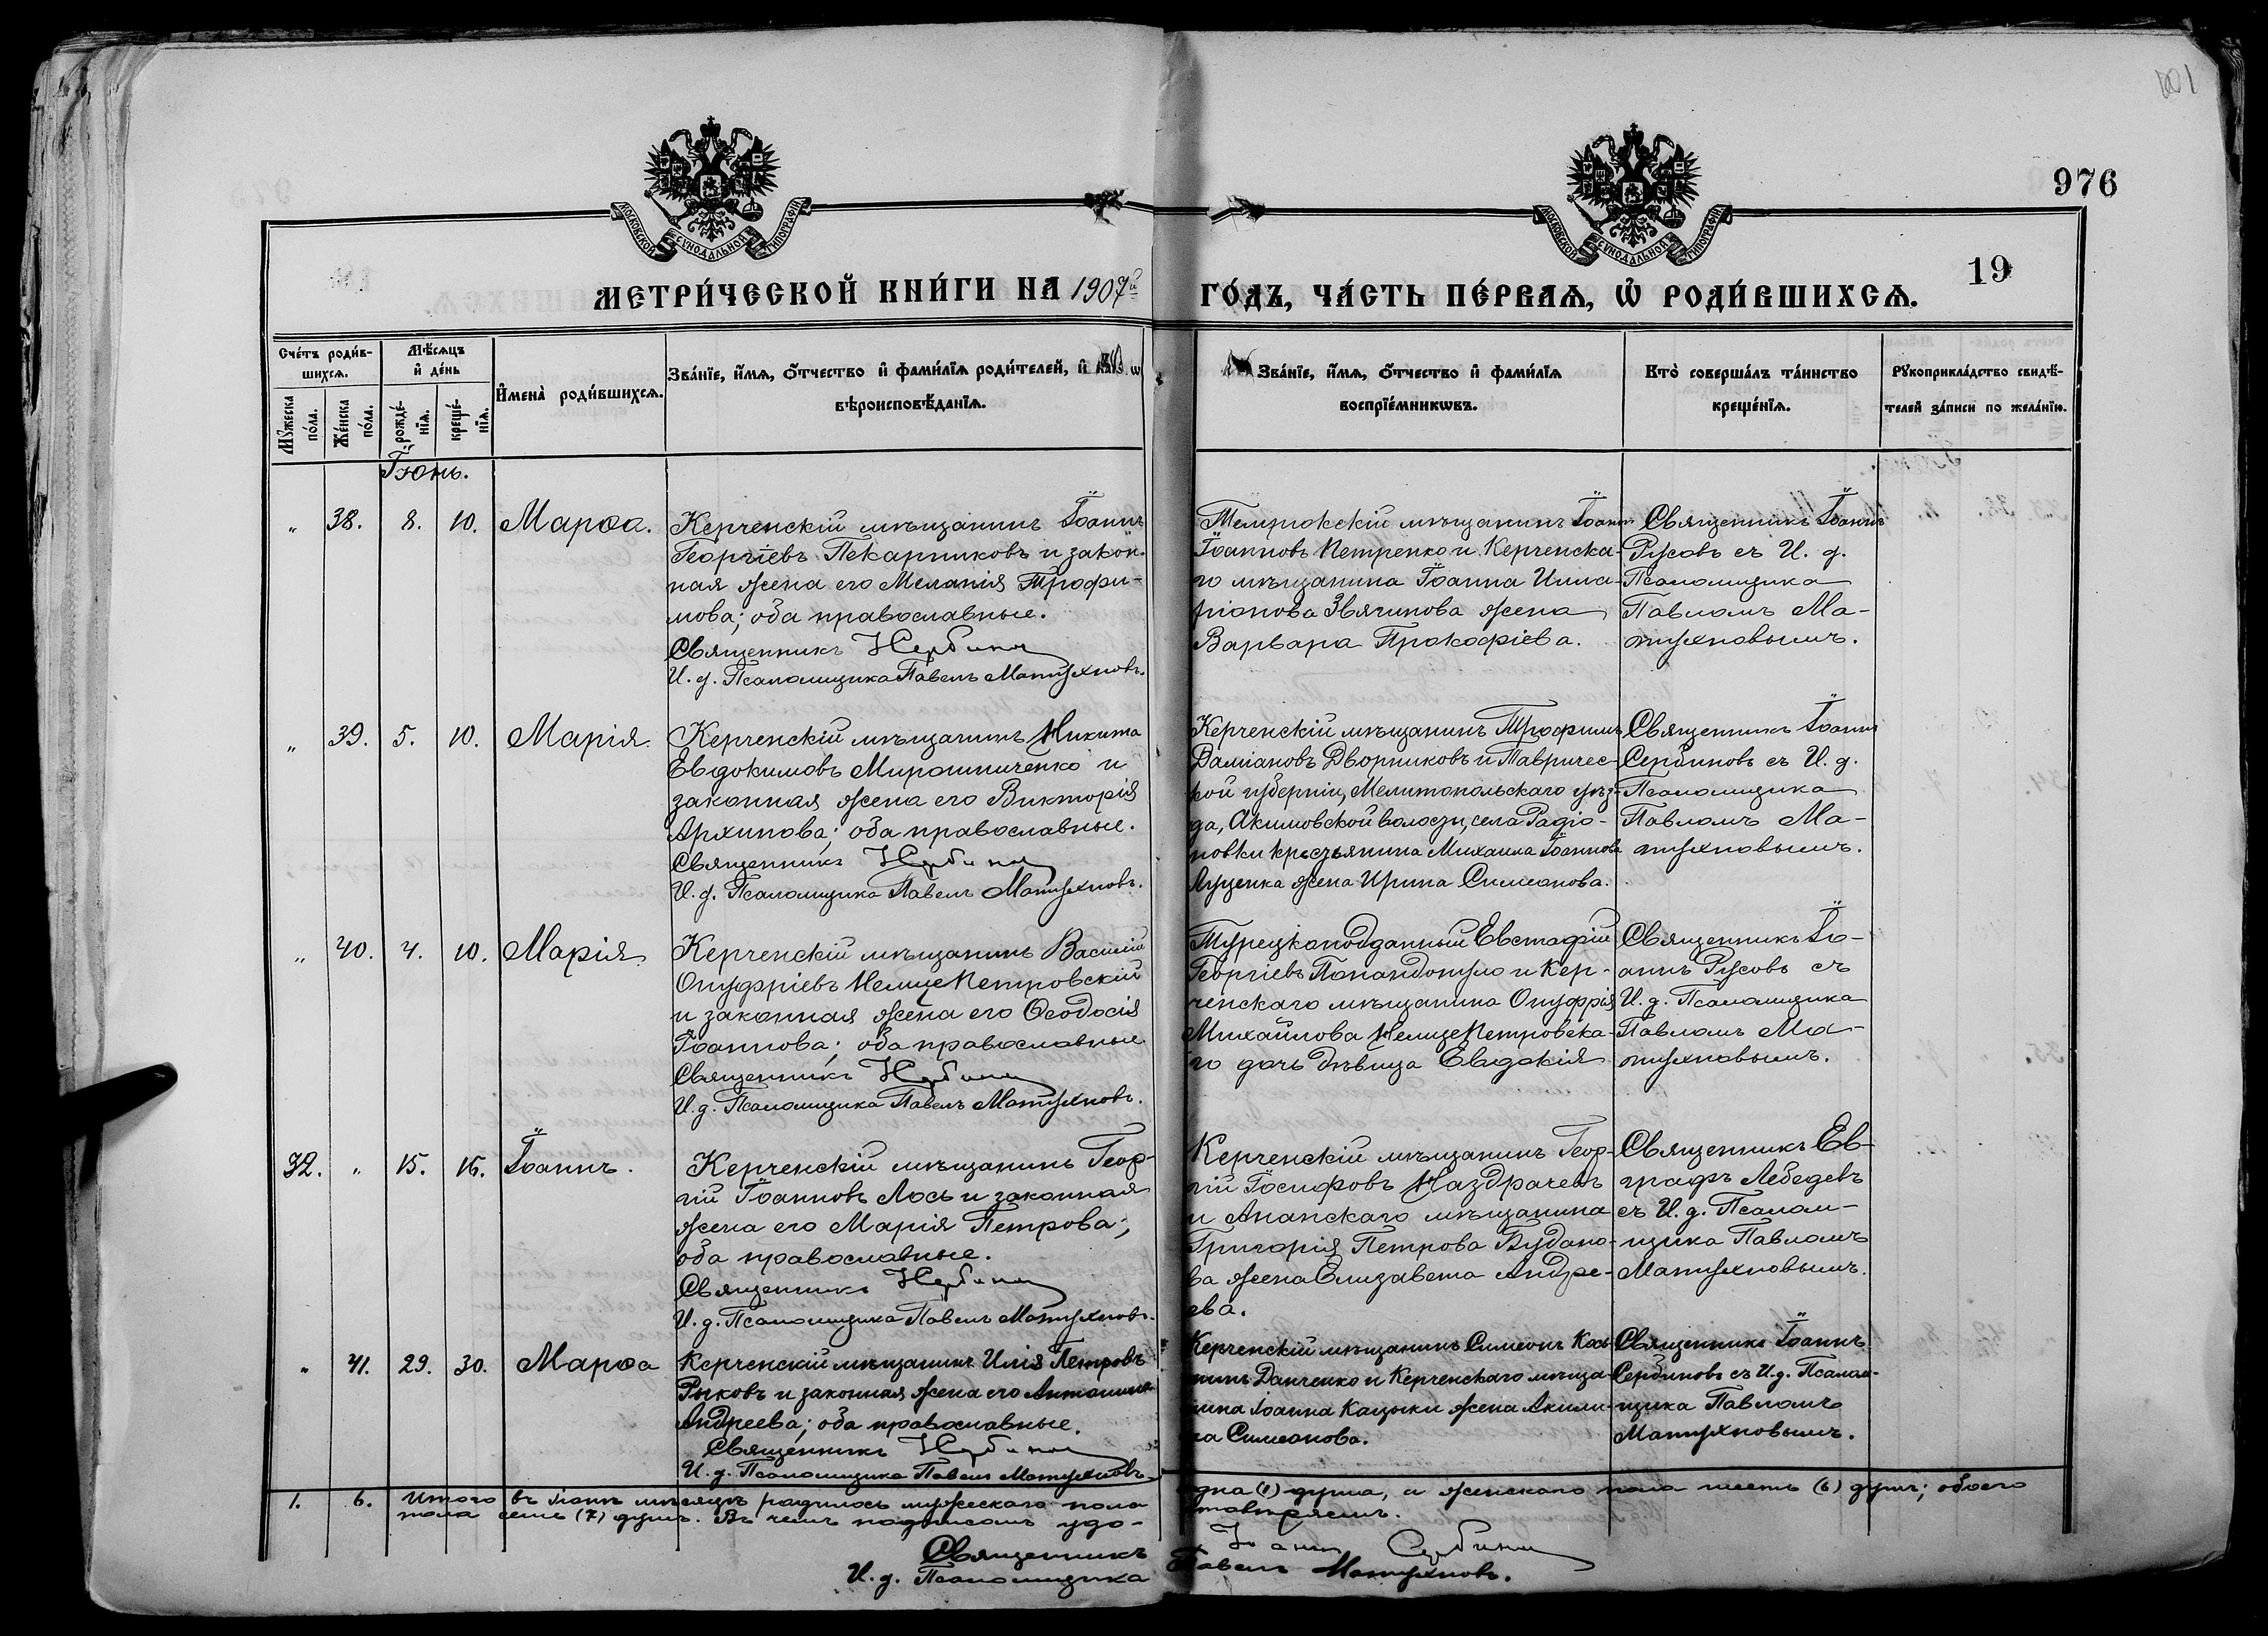 101
976
19
МОСКОВСКОЙ СѴНОДАЛЬНОЙ ТИПОГРАФІИ
МОСКОВСКОЙ СѴНОДАЛЬНОЙ ТИПОГРАФІИ
МЕТРИ́ЧЕСКОЙ КНИ́ГИ НА 1907й
ГО́ДЪ, ЧА́СТЬ ПЕ́РВАѦ, Ѡ҆ РОДИ́ВШИХСѦ.
Сче́тъ роди́в-
шихсѧ.
Мꙋ́жеска по́ла.
Же́нска по́ла.
Мѣ́сѧцъ
и҆ де́нь
рожде́-
нїѧ.
креще́-
нїѧ.
И҆мена̀ роди́вшихсѧ.
Зва́нїе, и҆́мѧ, ѻ҆́тчество и҆ фами́лїѧ роди́телей, и҆
вѣроисповѣ́данїѧ.
Зва́нїе, и҆́мѧ, ѻ҆́тчество и҆ фами́лїѧ
воспрїе́мникѡвъ.
Кто̀ соверша́лъ та́инство
креще́нїѧ.
Рꙋкоприкла́дство свидѣ́-
телей за́писи по жела́нїю.
Іюнь.
„ 38. 8. 10. Марѳа.
Керченскій мѣщанинъ Іоаннъ
Георгіевъ Пекарниковъ и закон-
ная жена его Меланія Трофи-
мова; оба православные.
Священникъ Сербиновъ
И. д. Псаломщика Павелъ Матухновъ.
Темрюкскій мѣщанинъ Іоаннъ
Іоанновъ Петренко и Керченска-
го мѣщанина Іоанна Илла-
ріонова Звягинова жена
Варвара Прокофіева.
Священникъ Іоаннъ
Русовъ съ И. д.
Псаломщика
Павломъ Ма-
тухновымъ.
„ 39. 5. 10. Марія.
Керченскій мѣщанинъ Никита
Евдокимовъ Мирошниченко и
законная жена его Викторія
Архипова; оба православные.
Священникъ Сербиновъ
И. д. Псаломщика Павелъ Матухновъ.
Керченскій мѣщанинъ Трофимъ
Даміановъ Дворниковъ и Тавричес-
кой губерніи, Мелитопольскаго уѣз-
да, Акимовской волости, села Радіо-
новки крестьянина Михаила Іоаннова
Луценка жена Ирина Симеонова.
Священникъ Іоаннъ
Сербиновъ съ И. д.
Псаломщика
Павломъ Ма-
тухновымъ.
„ 40. 4. 10. Марія
Керченскій мѣщанинъ Василій
Онуфріевъ НелицеПетровскій
и законная жена его Ѳеодосія
Іоаннова; оба православные
Священникъ Сербиновъ
И. д. Псаломщика Павелъ Матухновъ.
Турецкоподданный Евстафій
Георгіевъ Папандопуло и Кер-
ченскаго мѣщанина Онуфрія
Михайлова НелицеПетровска-
го дочь дѣвица Евдокія
Священникъ Іо-
аннъ Русовъ съ
И. д. Псаломщика
Павломъ Ма-
тухновымъ.
32. „ 15. 16. Іоаннъ.
Керченскій мѣщанинъ Геор-
гій Іоанновъ Лось и законная
жена его Марія Петрова;
оба православные.
Священникъ Сербиновъ
И. д. Псаломщика Павелъ Матухновъ.
Керченскій мѣщанинъ Геор-
гій Іосифовъ Наздрачевъ
и Анапскаго мѣщанина
Григорія Петрова Будано-
ва жена Елизавета Андре-
ева.
Священникъ Ев-
графъ Лебедевъ
съ И. д. Псалом-
щика Павломъ
Матухновымъ.
„ 41. 29. 30. Марѳа
Керченскій мѣщанинъ Илія Петровъ
Рыковъ и законная жена его Антонина
Андреева; оба православные.
Священникъ Сербиновъ
И. д. Псаломщика Павелъ Матухновъ
Керченскій мѣщанинъ Симеонъ Кось-
минъ Данченко и Керченскаго мѣща-
нина Іоанна Кацыки жена Акили-
на Симеонова.
Священникъ Іоаннъ
Сербиновъ съ И. д. Псалом-
щика Павломъ
Матухновымъ.
1. 6. Итого въ іюнѣ мѣсяцѣ родилось мужескаго пола одна (1) душа, а женскаго пола шесть (6) душъ; обоего
пола семь (7) душъ. Въ чемъ подписомъ удо-стовѣряемъ.
Священникъ Іоаннъ Сербиновъ
И. д. Псаломщика Павелъ Матухновъ.